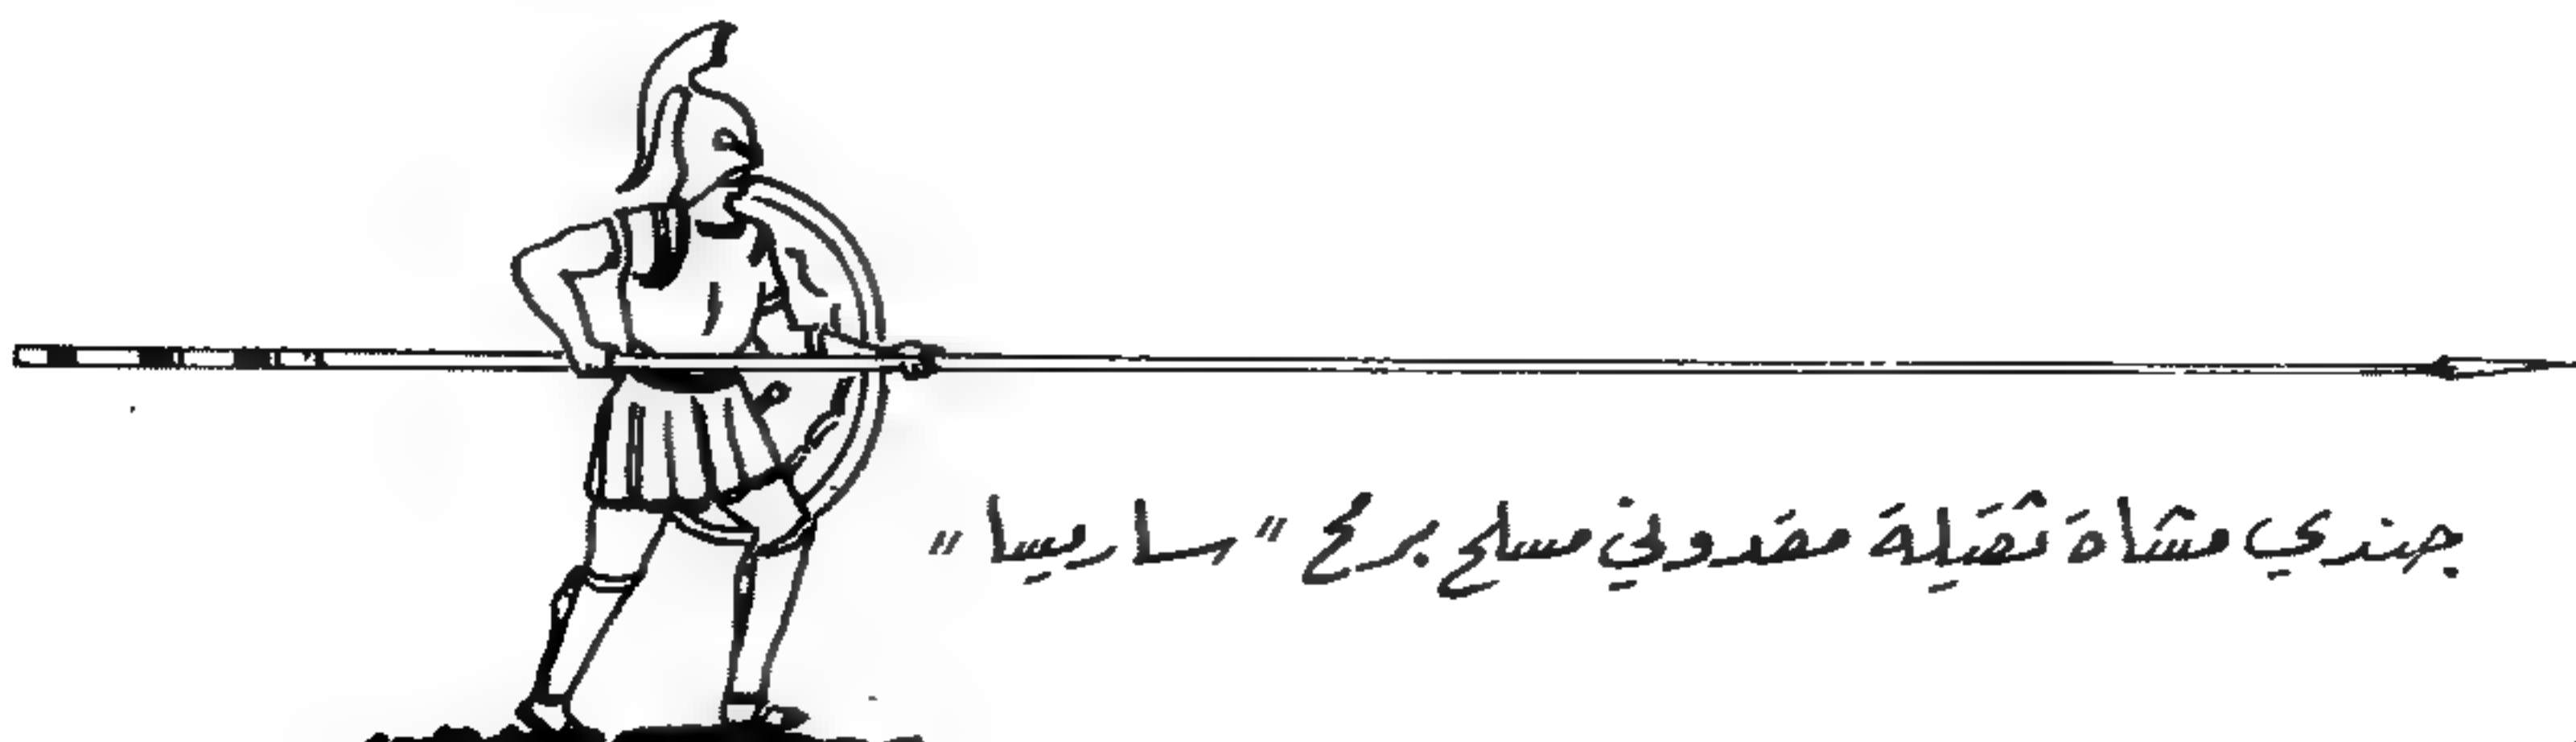 جندي مشاة ثقيلة مقدوني مسلح برمح "ساريسا"